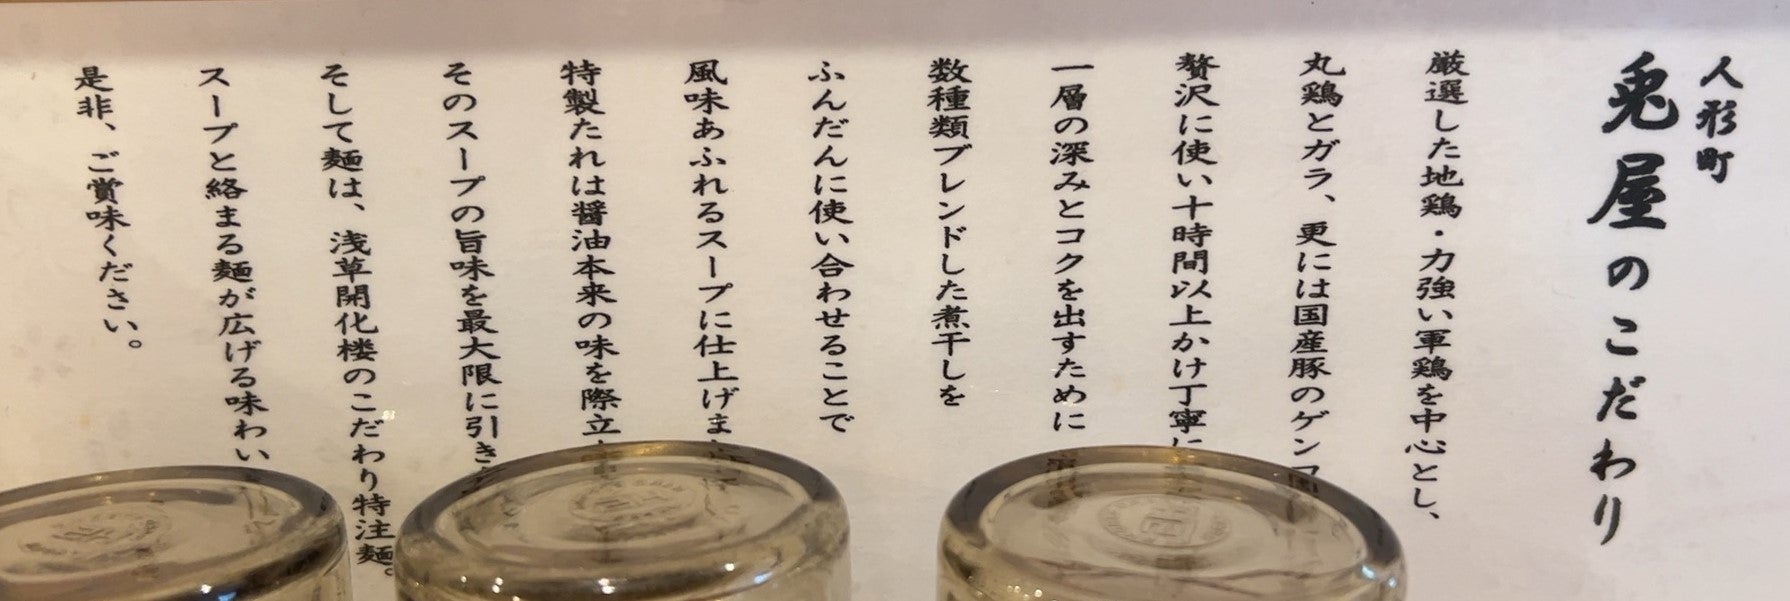 人形町
兎屋のこだわり
厳選した地鶏・力強い軍鶏を中心とし、
丸鶏とガラ、更には国産豚のゲンコ
贅沢に使い十時間以上かけ丁寧に
一層の深みとコクを出すために
数種類ブレンドした煮干しを
ふんだんに使い合わせることで
風味あふれるスープに仕上げま
特製たれは醤油本来の味を際立
そのスープの旨味を最大限に引き
そして麺は、浅草開化楼のこだわり特注麺。
スープと絡まる麺が広げる味わい
是非、ご賞味ください。